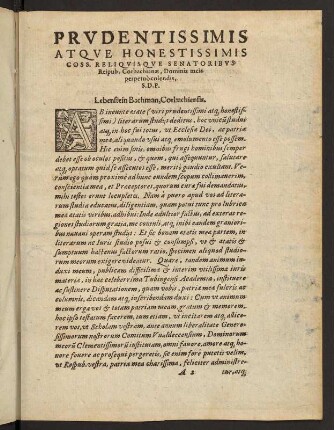 PRVDENTISSIMIS
ATQVE HONESTISSIMIS
COSS. RELIQVISQVE SENATORIBVS
Reipub. Corbachianæ, Dominis meis
perpetuò colendis,
S.D.P.
Lebenstein Bachman, Corbachiensis.
AB ineunte ætate (viri prudentissimi atq; honestis-
simi) literarum studijs deditus, hoc vnicè studui
atq; in hoc fui totus, vt Ecclesiæ Dei, ac patriæ
meæ, ali quando vsui atq; emolumento esse possem.
Hic enim finis, omnibus frugi hominibus semper
debet esse ob oculos positus, & quem, qui assequuntur, salutare
atq; optatum quid se assecutos esse, meritò gaudio exultant. Ve-
rumq; vero quàm proximè ad hunc eundem scopum collimarem,
conscientia mea, et Præceptores, quorum curæ fui demandatus,
mihi testes erunt locupletes. Nam à puero apud vos ad litera-
rum studia enutritus, diligentiam, quam potui tunc pro lubrica
mea ætatis viribus, adhibui: Inde adultior factus, ad exteras re-
giones studiorum gratia, me contuli, atq; inibi eandem grauiori-
bus nauaui operam studijs: Et sic bonam ætatis meæ partem, in
literarum ac Iuris studio posui & consumpsi, vt & ætatis & sum-
ptuum hactenus factorum ratio, specimen aliquod studio-
rum meorum exigere videatur. Quare, tandem animum in-
duxi meum, publicam difficilimæ & interim vtilissimæ iuris
materiæ, in hac celeberrima Tubingensi Academia, instituere
ac sustinere Disputationem, quam vobis, patriæ meæ fulcris ac
columnis, dicandam atq; inscribendam duxi: Cum vt animum
meum erga vos et totam patriam meam, gratum & memorem,
hoc ipso testatum facerem, tum etiam, vt incitarem atq; allice-
rem vos, vt Scholam vestram, ante annum liberalitate Genero-
sissimorum nostrorum Comitum VValdeccensium, Dominorum
meorũ Clementissimorũ institutam, omni fauore, amore atq; ho-
nore fouere ac prosequi pergeretis, sic enim fore putetis velim,
vt Respub. vestra, patria mea charissima, feliciter administre-
A 2 tur, atq;